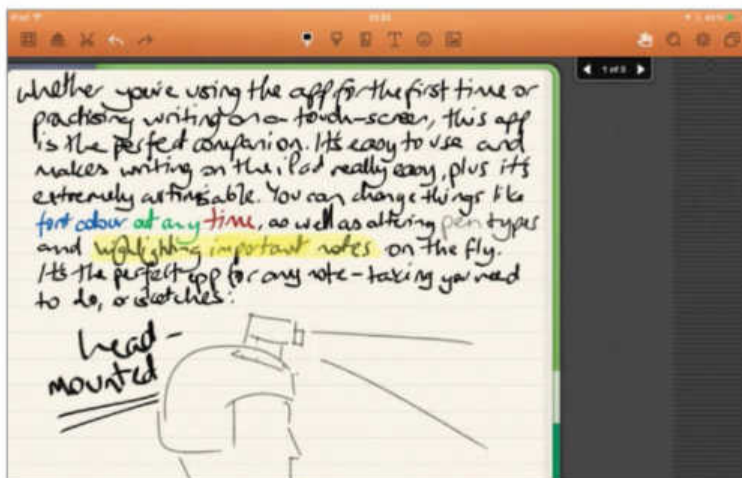 iPad
T
1 of 3
Whether you're using the app for the first time or
practising writing on a touch-screen, this app
is the perfect companion. It's easy to use and
makes writing on the iPad really easy, plus it's
extremely customisable. You can change things like
font colour at any time, as well as altering pen types
and highlighting important notes on the fly.
It's the perfect app for any note-taking you need
to do, or sketches:
head-
mounted